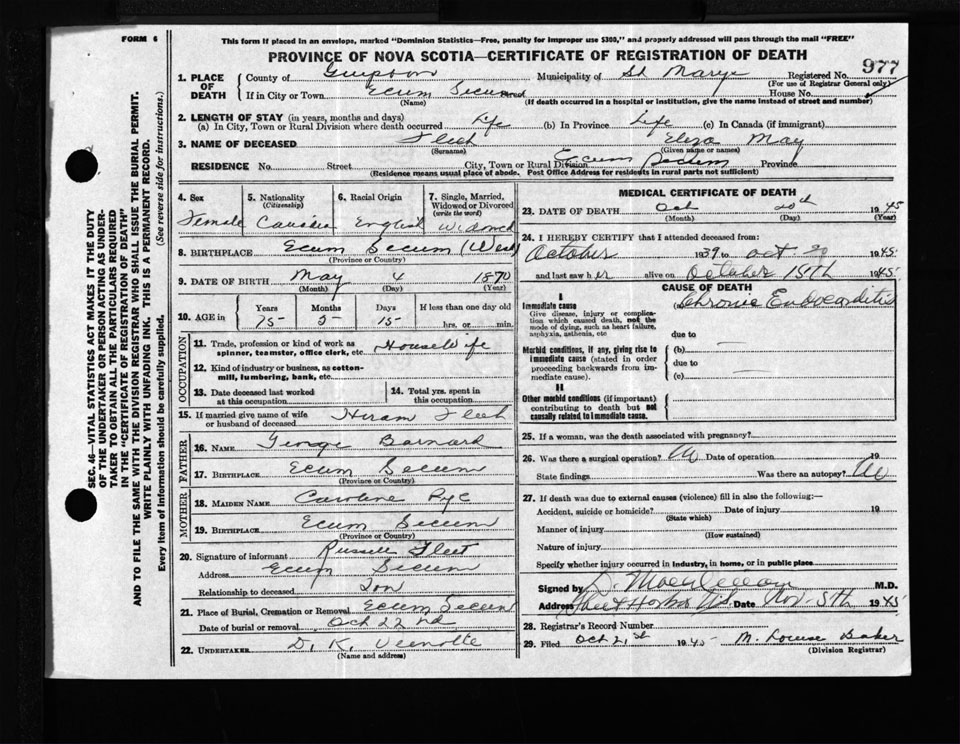 FORM 6
This form if placed in an envelope, marked "Dominion Statistics—Free, penalty for improper use $300," and properly addressed will pass through the mail "FREE"
PROVINCE OF NOVA SCOTIA—CERTIFICATE OF REGISTRATION OF DEATH
977
1. PLACE OF DEATH
County of Municipality of St Marys Registered No.
(For use of Registrar General only)
If in City or Town Ecum Secum House No.
(Name) (If death occurred in a hospital or institution, give the name instead of street and number)
2. LENGTH OF STAY (in years, months and days)
(a) In City, Town or Rural Division where death occurred Life (b) In Province Life (c) In Canada (if immigrant)
3. NAME OF DECEASED Fleet Eliza May
(Surname) (Given name or names)
RESIDENCE No. Street City, Town or Rural Division Ecum Secum Province
(Residence means usual place of abode. Post Office Address for residents in rural parts not sufficient)
4. Sex Female
5. Nationality (Citizenship) Canadian
6. Racial Origin English
7. Single, Married, Widowed or Divorced (write the word) Widowed
8. BIRTHPLACE Ecum Secum (West)
(Province or Country)
9. DATE OF BIRTH May 4 1870
(Month) (Day) (Year)
10. AGE in Years Months Days If less than one day old
75 5 15 hrs. or min.
OCCUPATION
11. Trade, profession or kind of work as spinner, teamster, office clerk, etc. House Wife
12. Kind of industry or business, as cotton-mill, lumbering, bank, etc.
13. Date deceased last worked at this occupation
14. Total yrs. spent in this occupation
15. If married give name of wife or husband of deceased Hiram Fleet
FATHER
16. NAME George Barnard
17. BIRTHPLACE Ecum Secum
(Province or Country)
MOTHER
18. MAIDEN NAME Caroline Pye
19. BIRTHPLACE Ecum Secum
(Province or Country)
20. Signature of informant Russell Fleet
Address Ecum Secum
Relationship to deceased Son
21. Place of Burial, Cremation or Removal Ecum Secum
Date of burial or removal Oct 22nd
22. UNDERTAKER D. K.
(Name and address)
MEDICAL CERTIFICATE OF DEATH
23. DATE OF DEATH Oct 20th 1945
(Month) (Day) (Year)
24. I HEREBY CERTIFY that I attended deceased from:
October 1939 to Oct 20 1945
and last saw her alive on October 18th 1945
CAUSE OF DEATH
I
Immediate cause Chronic Endocarditis
Give disease, injury or complication which caused death, not the mode of dying, such as heart failure, asphyxia, asthenia, etc
due to
Morbid conditions, if any, giving rise to immediate cause (stated in order proceeding backwards from immediate cause).
(b)
due to
(c)
II
Other morbid conditions (if important) contributing to death but not causally related to immediate cause.
25. If a woman, was the death associated with pregnancy?
26. Was there a surgical operation? No Date of operation 19
State findings Was there an autopsy? No
27. If death was due to external causes (violence) fill in also the following:—
Accident, suicide or homicide? Date of injury 19
(State which)
Manner of injury
(How sustained)
Nature of injury
Specify whether injury occurred in industry, in home, or in public place
Signed by M.D.
Address Harbor N.S. Date Nov. 5th 1945
28. Registrar's Record Number
29. Filed Oct 21st 1945 M. Louise Baker
(Division Registrar)
SEC. 46—VITAL STATISTICS ACT MAKES IT THE DUTY
OF THE UNDERTAKER OR PERSON ACTING AS UNDER-
TAKER TO OBTAIN ALL THE PARTICULARS REQUIRED
IN THE "CERTIFICATE OF REGISTRATION OF DEATH"
AND TO FILE THE SAME WITH THE DIVISION REGISTRAR WHO SHALL ISSUE THE BURIAL PERMIT.
WRITE PLAINLY WITH UNFADING INK. THIS IS A PERMANENT RECORD.
Every item of information should be carefully supplied. (See reverse side for instructions.)